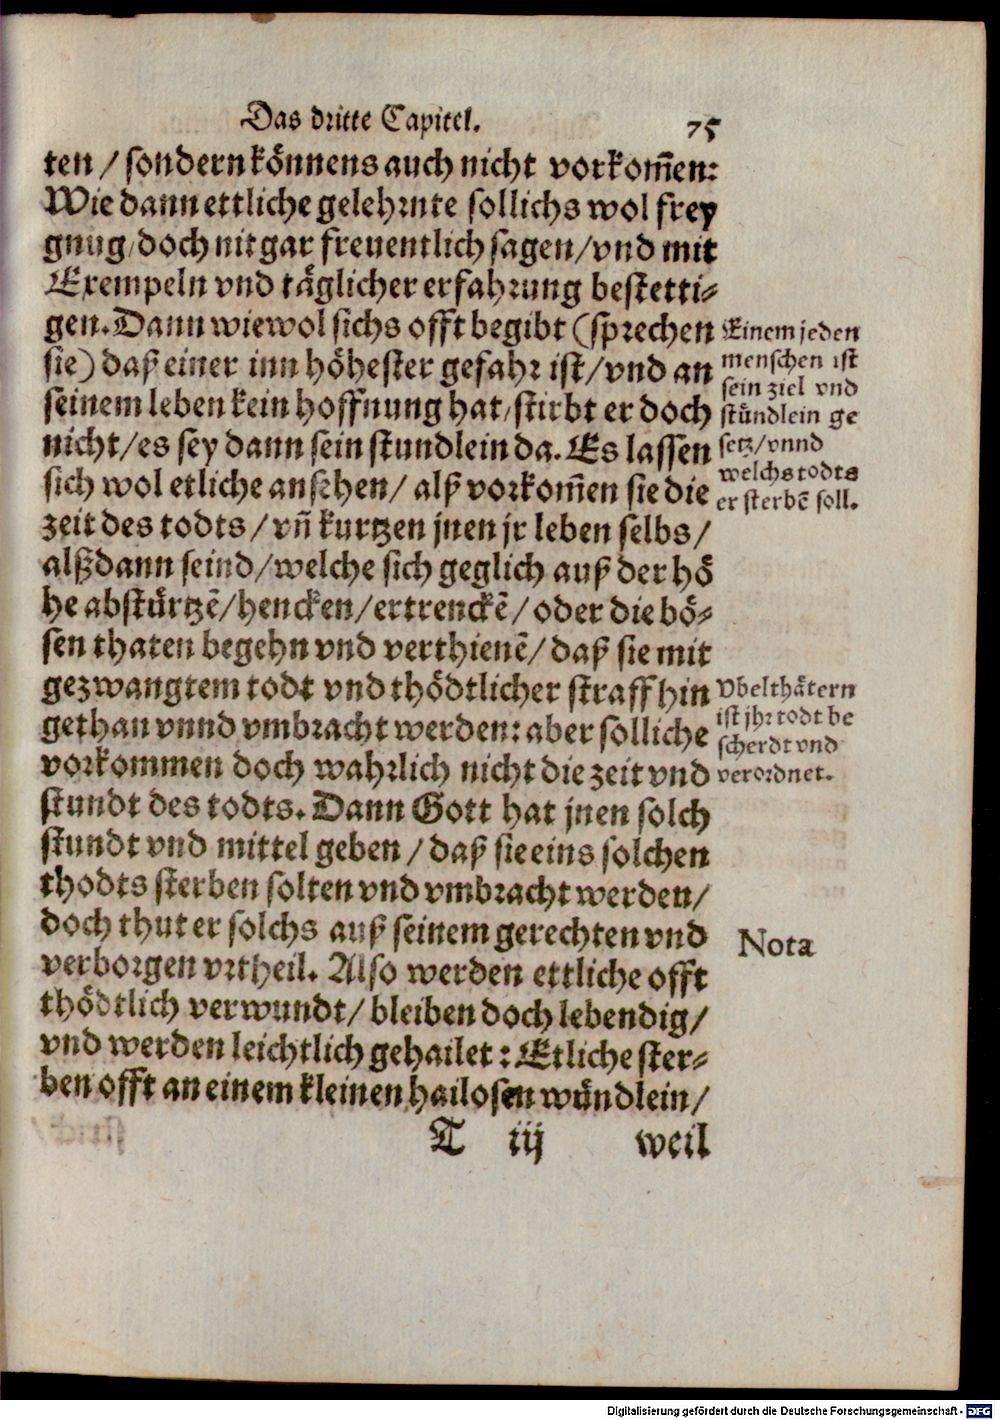 Das dritte Capitel. 75
ten / sondern können s auch nicht vorkom̄en:
Wie dann ettliche gelehrnte sollichs wol frey
gnug/ doch nit gar freuentlich sagen/ vnd mit
Exempeln vnd täglicher erfahrung bestetti-
gen. Dann wiewol sichs offt begibt (sprechen
sie) daß einer inn höhester gefahr ist/ vnd an
seinem leben kein hoffnung hat/ stirbt er doch
nicht/ es sey dann sein stundlein da. Es lassen
sich wol etliche ansehen/ alß vorkom̄en sie die
zeit des todts/ vn̄ kurtzen jnen jr leben selbs/
alßdann seind/ welche sich geglich auß der hö
he abstürtzē/ hencken/ ertrenckē/ oder die bö-
sen thaten begehn vnd verthienē/ daß sie mit
gezwangtem todt vnd thödtlicher straff hin
gethan vnnd vmbracht werden: aber solliche
vorkommen doch wahrlich nicht die zeit vnd
stundt des todts. Dann Gott hat jnen solch
stundt vnd mittel geben / daß sie eins solchen
thodts sterben solten vnd vmbracht werden/
doch thut er solchs auß seinem gerechten vnd
verborgen vrtheil. Also werden ettliche offt
thödtlich verwundt/ bleiben doch lebendig/
vnd werden leichtlich gehailet: Etliche ster-
ben offt an einem kleinen hailosen wündlein/
T iij weil
Einem jeden
menschen ist
sein ziel vnd
stündlein ge
setz/ vnnd
welchs todts
er sterbē soll.
Vbelthätern
ist jhr todt be
scherdt vnd
verordnet.
Nota
Digitalisierung gefördert durch die Deutsche Forschungsgemeinschaft - DFG